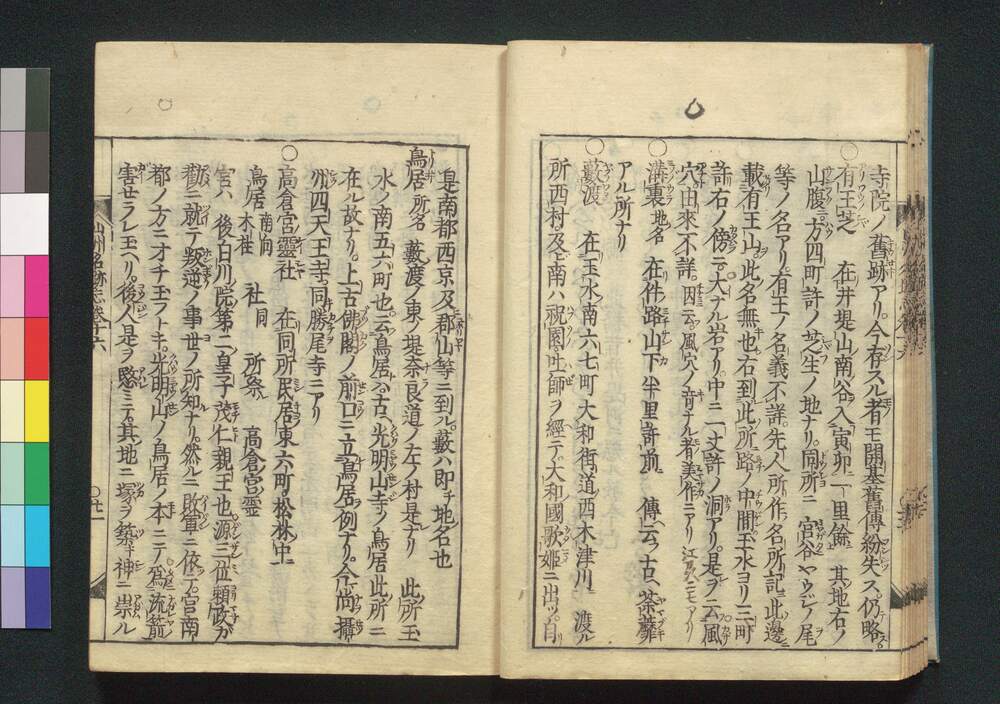 寺院ノ舊跡アリ。今存スル者モ開基舊傳紛失ス仍略
○有王芝　在井堤山南谷入寅卯一里餘　其地右ノ
山腹ニ方四町許ノ芝生ノ地ナリ。同所ニ宮谷ヤウジノ尾
等ノ名アリ。有王ノ名義不詳。先人所作名所記ニ此邊ニ
載有王山。此名無也右到此所路ノ中間玉水ヨリ三町
許右ノ傍ニ大ナル岩アリ。中ニ一丈許ノ洞アリ。是ヲ云風
穴。由來不詳。因云。風穴ノ奇ナル者美作ニアリ江刕ニモアリ
○溝裏地名　在件路山下半里許前　傳云古ヘ茶蘼
アル所ナリ
○藪渡　在玉水南六七町大和街道西木津川ノ渡ル
所西村。及ヒ南ハ祝園吐師ヲ經テ大和國歌姫ニ出ッ。自
是南都西京及ヒ郡山等ニ到ル。藪ハ即チ地名也
鳥居所名　藪渡ノ東ノ堤奈良道ノ左ノ村是アリ　此所玉
水ノ南五六町也。云鳥居ハ古ヘ光明山寺ノ鳥居此所ニ
在ル故ナリ。上古佛閣ノ前ロニ立鳥居例ナリ。今尚攝
州四天王寺。同勝尾寺ニアリ
○高倉宮靈社　在同所民居東六町。松林中
鳥居南向木柱　社同　所祭　高倉宮ノ靈
宮ハ　後白川ノ院第二ノ皇子茂仁親王也。源三位頼政ガ
勸ニ就テ叛逆ノ事世ノ所知ナリ。然ルニ敗軍ニ依テ。宮南
都ノ方ニオチ玉フトキ。光明山ノ鳥居ノ本ニテ爲流箭
害セラレ玉ヘリ。後人是ヲ愍ミテ。其地ニ塚ヲ築キ神ニ崇ル